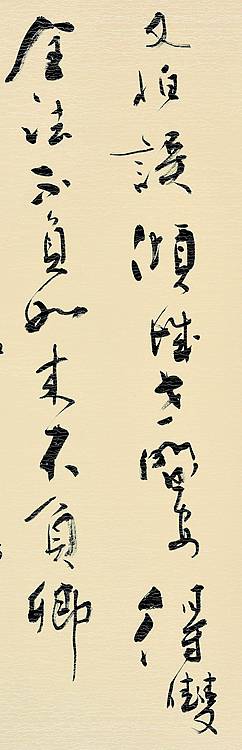 又怕誤傾城世間安得雙
全法不負如来不負卿